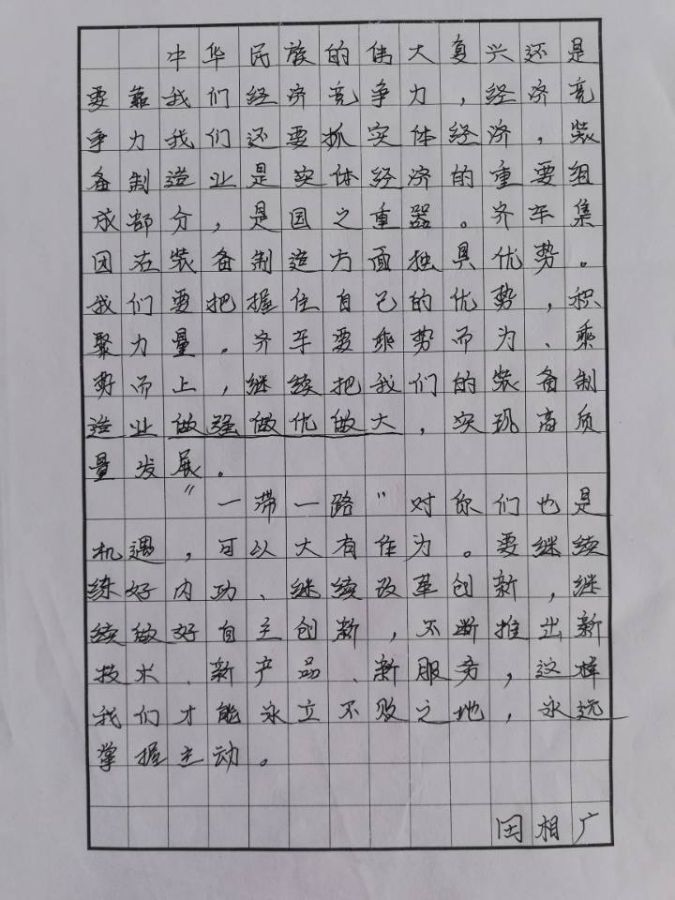 中华民族的伟大复兴还是
要靠我们经济竞争力，经济竞
争力我们还要抓实体经济，装
备制造业是实体经济的重要组
成部分，是国之重器。齐车集
团在装备制造方面独具优势。
我们要把握住自己的优势，积
聚力量。齐车要乘势而为、乘
势而上，继续把我们的装备制
造业做强做优做大，实现高质
量发展。
“一带一路”对你们也是
机遇，可以大有作为。要继续
练好内功、继续改革创新，继
续做好自主创新，不断推出新
技术、新产品、新服务，这样
我们才能永立不败之地，永远
掌握主动。
田相广